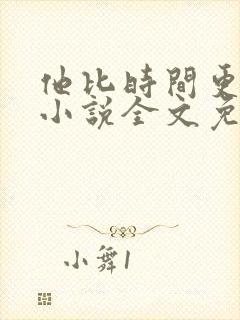 他比時間更
小說全文免
小舞1